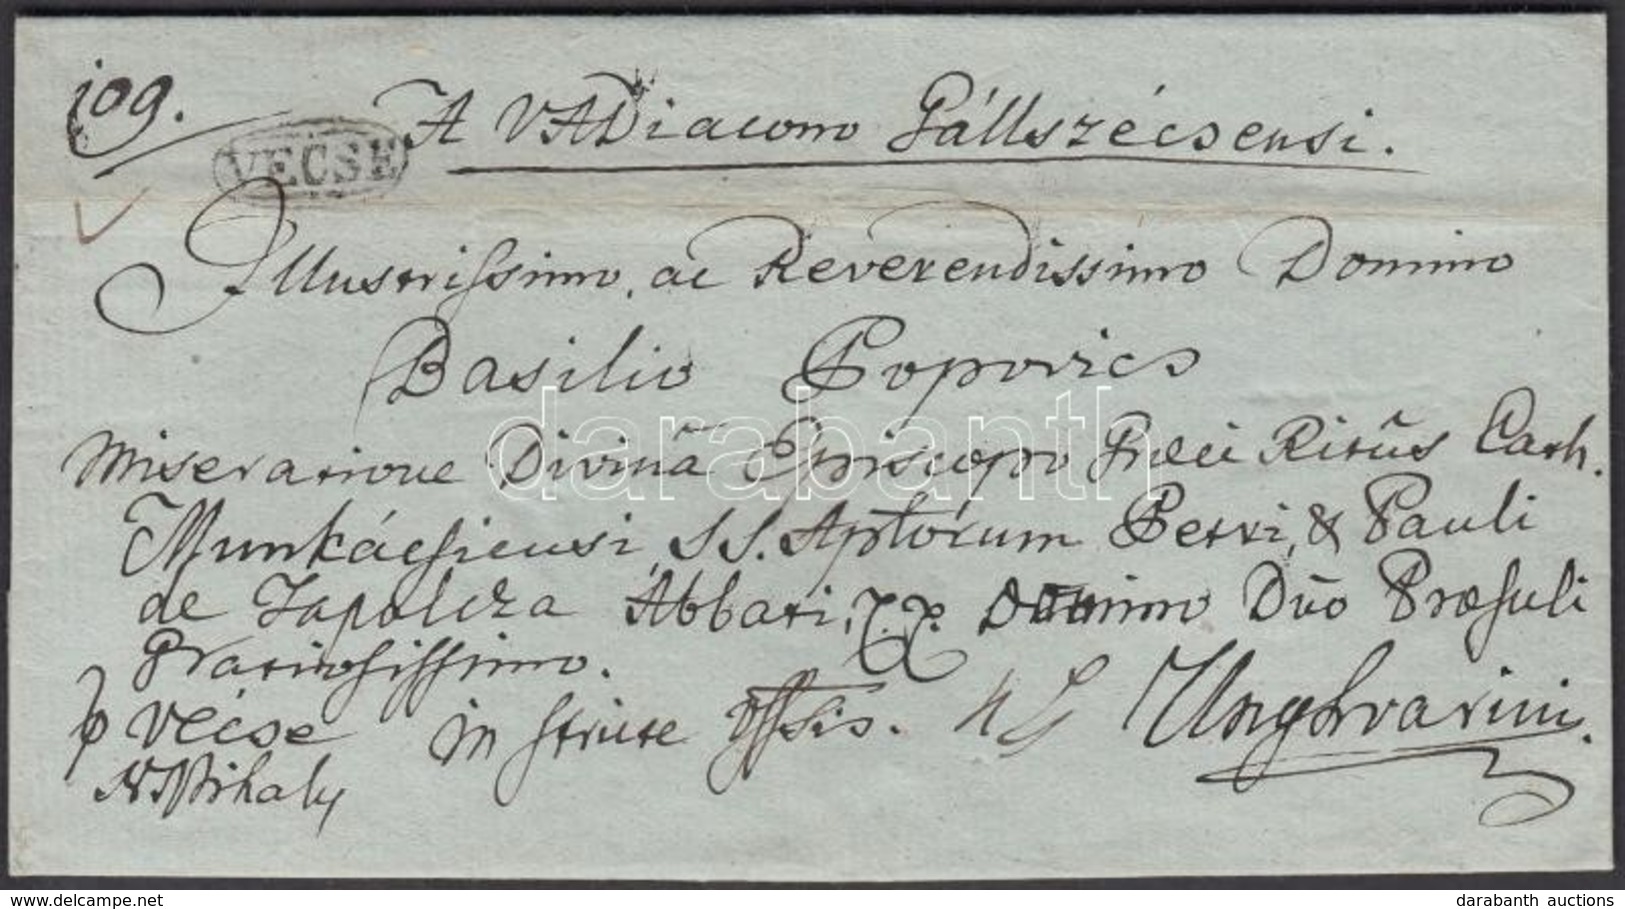 109.
A VADiacono Gállszécsensi.
VECSE
Illustrissimo, ac Reverendissimo Domino
Basilio Popovics
Miseratione Divinã Episcopo Græci Ritûs Cath.
Munkácsiensi, SS. Aptõrum Petri, & Pauli
de Tapolcza Abbati, Domino Dño Præsuli
Gratiosissimo.
p Vécse in stricte Offsis. Unghvarini.
N Mihaly
darabanth
delcampe.net
darabanth auctions